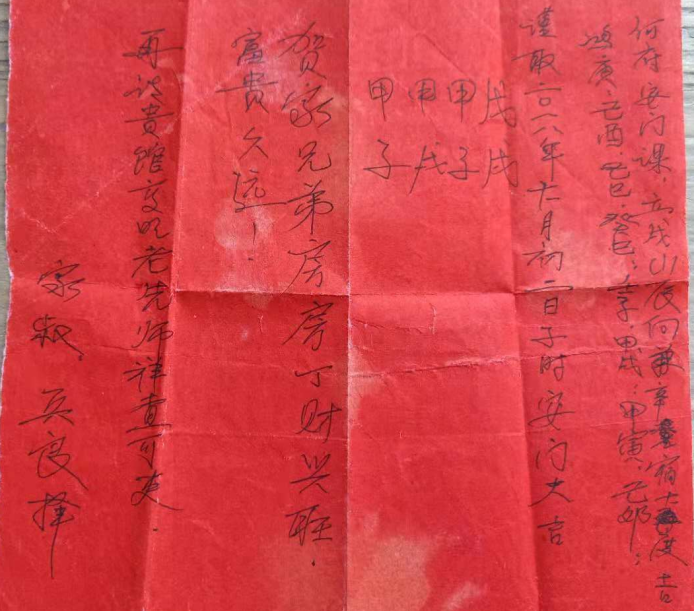 何府安门课，立戌山辰向兼辛宿十度吉
鸿庚：乙酉、乙巳、癸巳；壬子、甲戌；甲寅、乙卯；
谨取二〇一八年十月初二日子时安门大吉
戊戌
甲子
甲戌
甲子
贺家兄弟房房丁财兴旺．
富贵久远！
再请贵馆高明老先师祥查可史．
家叔 兵良择